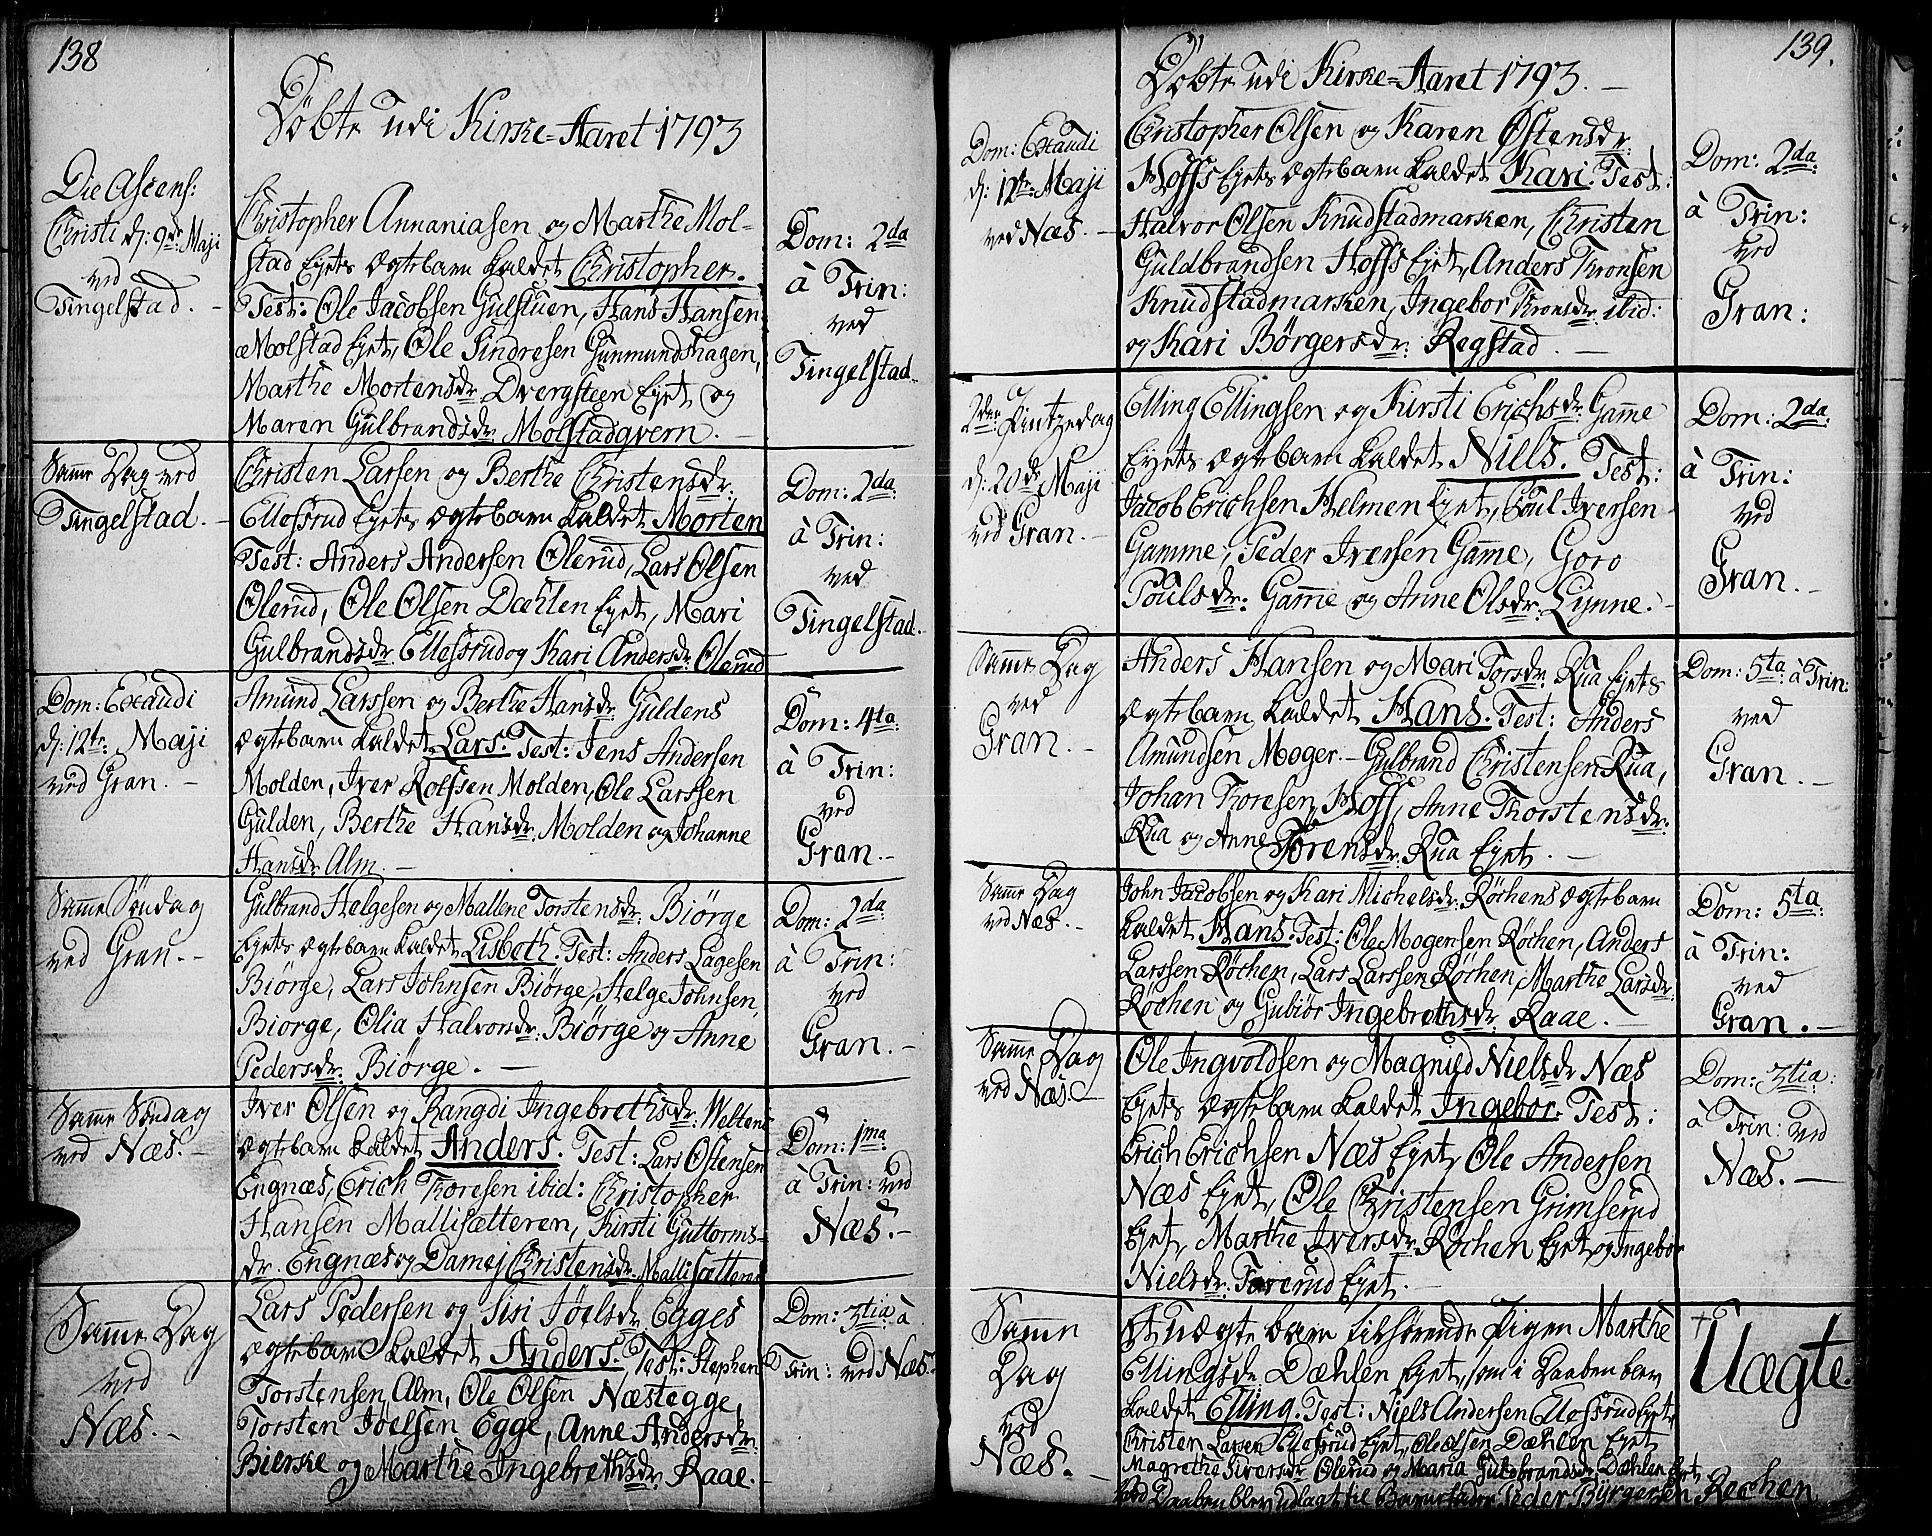 138
Døbte udi Kirke-Aaret 1793
Die Ascens:
Christi d: 9de Maji
ved
Tingelstad.
Christopher Annaniasen og Marthe Mol-
stad Eyets Ægtebarn kaldet Christopher.
Test: Ole Jacobsen Gulstuen, Hans Hansen
Molstad Eyet, Ole Sindresen Gunmundshagen,
Marthe Mortensdr: Dvergsteen Eyet og
Maren Gulbrandsdr: Molstadqvern.
Dom: 2da
à Trin:
ved
Tingelstad.
Samme Dag ved
Tingelstad.
Christen Larsen og Berthe Christensdr:
Ellessrud Eyets Ægtebarn kaldet Morten
Test: Anders Andersen Olerud, Lars Olsen
Olerud, Ole Olsen Dæhlen Eyet, Mari
Gulbrandsdr: Ellessrud og Kari Andersdr: Olerud
Dom: 2da:
à Trin:
ved
Tingelstad.
Dom: Exaudi
d: 12te: Maji
ved Gran.
Amund Larssen og Berthe Hansdr: Guldens
Ægtebarn kaldet Lars. Test: Jens Andersen
Molden, Iver Rolfsen Molden, Ole Larssen
Gulden, Berthe Hansdr: Molden og Johanne
Hansdr: Alm.
Dom: 4ta:
à Trin:
ved
Gran.
Samme Søndag
ved Gran.
Gulbrand Helgesen og Mallene Torstensdr: Biørge
Eyets Ægtebarn kaldet Lisbeth. Test: Anders Lagesen
Biørge, Lars Johnsen Biørge, Helge Johnsen,
Biorge, Olia Halvorsdr: Biørge og Anne
Pedersdr: Biørge.
Dom: 2da:
à Trin:
ved
Gran.
Samme Søndag
ved Næs.
Iver Olsen og Rangdi Ingebrethsdr: Weltens
Ægtebarn kaldet Anders. Test: Lars Ostensen
Engnæs, Erich Thoresen ibid: Christopher
Hansen Mallisætteren, Kirsti Guttorms-
dr: Engnæs og Damej Christensdr: Mallisætteren
Dom: 1ma:
à Trin: ved
Næs.
Samme Dag
ved
Næs.
Lars Pedersen og Siri Jöelsdr: Egges
Ægtebarn kaldet Anders. Test: Stephen
Torstensen Alm, Ole Olsen Næstegge,
Torsten Jöelsen Egge, Anne Andersdr:
Bierke og Marthe Ingebrethsdr: Raae.
Dom: 3tia à
Trin: ved Næs.
139.
Døbte udi Kirke-Aaret 1793.
Dom: Exaudi
d: 12te Maji
ved Næs.
Christopher Olsen og Karen Østensdr:
Hoffs Eyets Ægtebarn kaldet Kari. Test:
Halvor Olsen Knudstadmarken, Christen
Guldbrandsen Hoffs Eyet, Anders Tronsen
Knudstadmarken, Ingebor Tronsdr: ibid:
og Kari Börgersdr: Regstad.
Dom: 2da
à Trin:
ved
Gran:
2den Pintzedag
d: 20de Maji
ved Gran.
Elling Ellingsen og Kirsti Erichsdr: Gamme
Eyets Ægtebarn kaldet Niels. Test:
Jacob Erichsen Helmen Eyet, Poul Iversen
Gamme, Peder Iversen Gamme, Goro
Poulsdr: Gamme og Anne Olsdr: Lynne.
Dom: 2da:
à Trin:
ved
Gran.
Samme Dag
ved
Gran.
Anders Hansen og Mari Torsdr: Rua Eyets
Ægtebarn kaldet Hans. Test: Anders
Amundsen Moger. Gulbrand Christensen Rua,
Johan Thoresen, Hoff, Anne Thorstensdr:
Rua og Anne Törensdr: Rua Eyet.
Dom: 5ta: à Trin:
ved
Gran.
Samme Dag
ved Næs.
John Jacobsen og Kari Michelsdr: Röchens Ægtebarn
kaldet Hans. Test: Ole Mogensen Röchen, Anders
Larssen Röchen, Lars Larssen Röchen, Marthe Larsdr:
Röchen og Gubiör Ingebrethsdr: Raae.
Dom: 5ta:
à Trin:
ved
Gran.
Samme Dag
ved Næs.
Ole Ingvoldsen og Magnild Nielsdr: Næs
Eyets Ægtebarn kaldet Ingebor. Test:
Erich Erichsen Næs Eyet, Ole Andersen
Næs Eyet, Ole Christensen Grimserud
Eyet, Marthe Iversdr: Röchen Eyet, og Ingebor
Nielsdr: Torerud Eyet.
Dom: 3tia:
à Trin: ved
Næs.
Samme
Dag
ved
Næs.
Et Uægte barn tilhørende Pigen Marthe
Ellingsdr: Dæhlen Eyet, som i Daaben blev
kaldet Elling. Test: Niels Andersen Ellessrud Eyet,
Christen Larsen Ellessrud Eyet, Ole Olsen Dæhlen Eyet
Magrethe Siversdr: Olerud og Maria Guldbrandsdr: Dæhlen Eyet
Ved Daaben blev udlagt til Barnefader Peder Byrgersen Rechen
† Uægte.